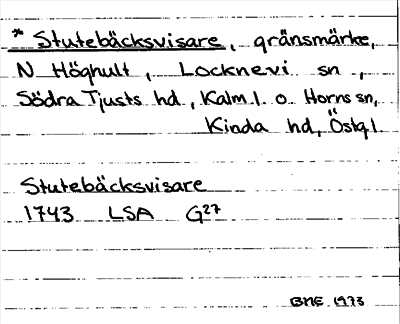 * Stutebäcksvisare, gränsmärke,
N Höghult, Locknevi sn,
Södra Tjusts hd, Kalm.l. o. Horns sn,
Kinda hd, Östg.l.
Stutebäcksvisare
1743 LSA G27
BME 1973